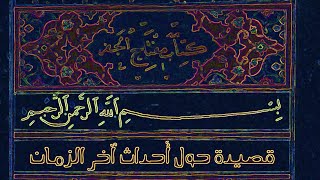 كتاب مفتاح الجفر
بسم الله الرحمن الرحيم
قصيدة حول أحداث آخر الزمان